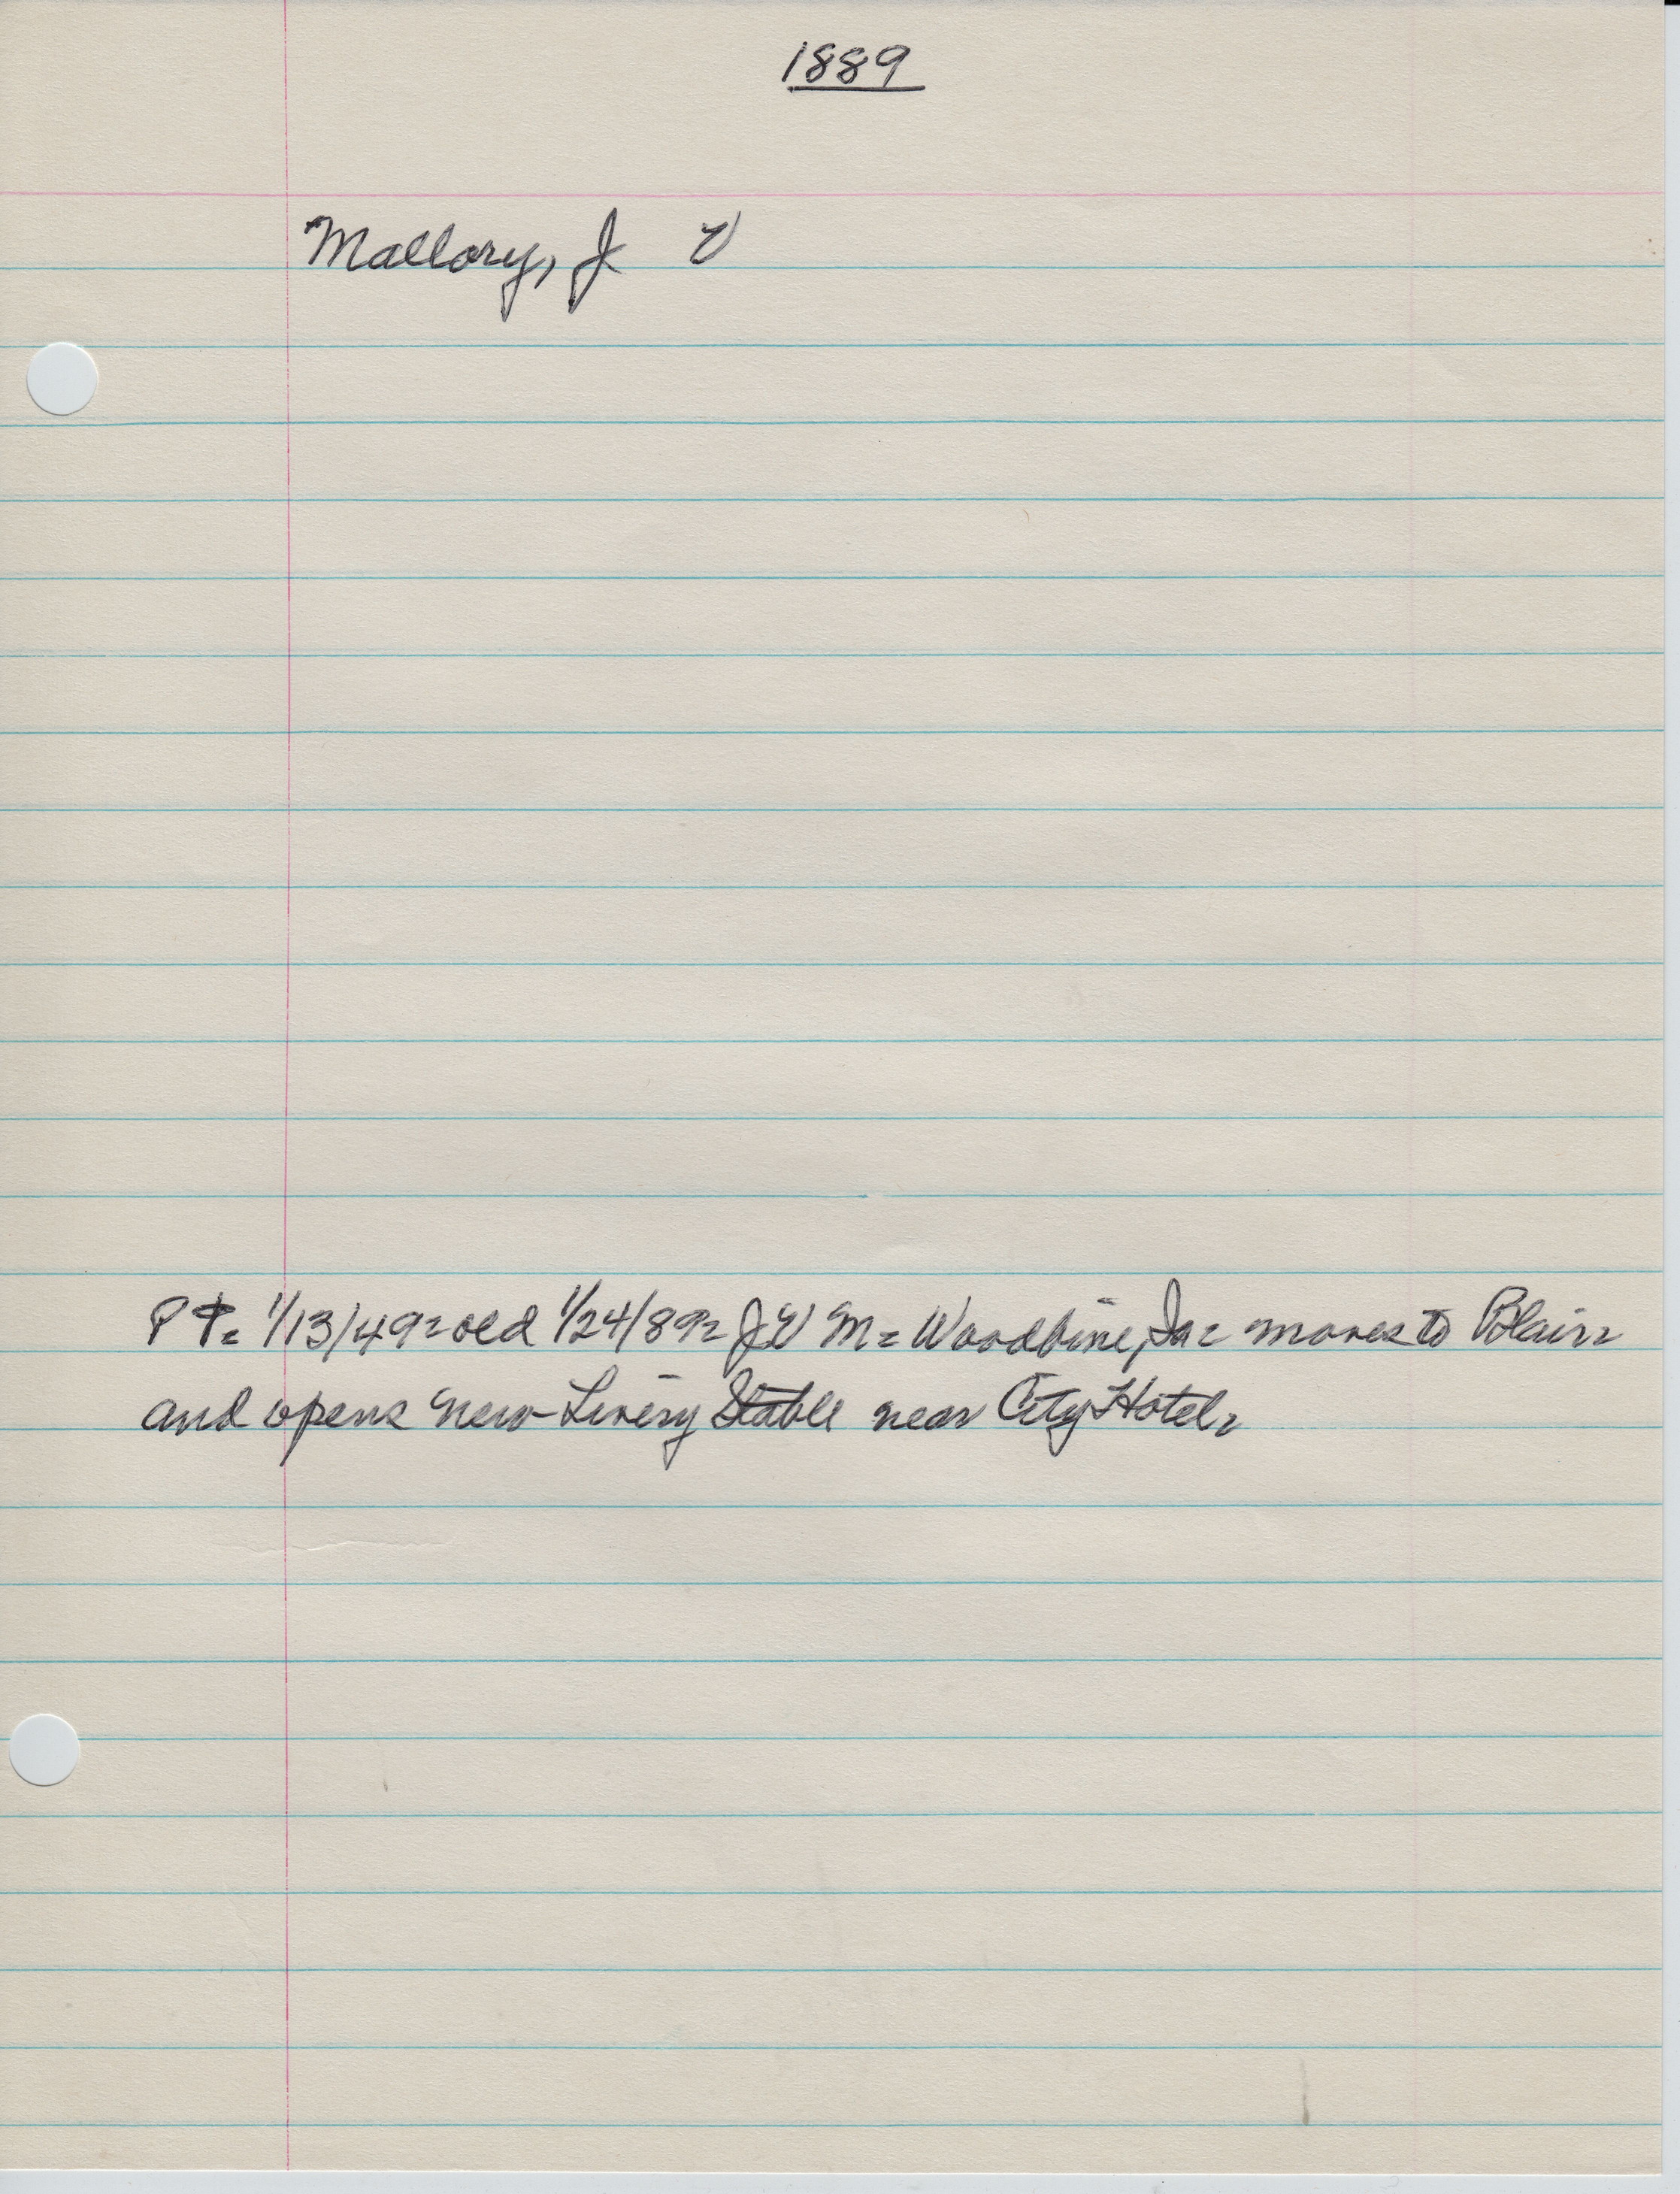 1889
Mallory, J V
P T= 1/13/49=old 1/24/89= J V M= Woodbine, Ia= moves to Blair=
and opens new Livery Stable near City Hotel=